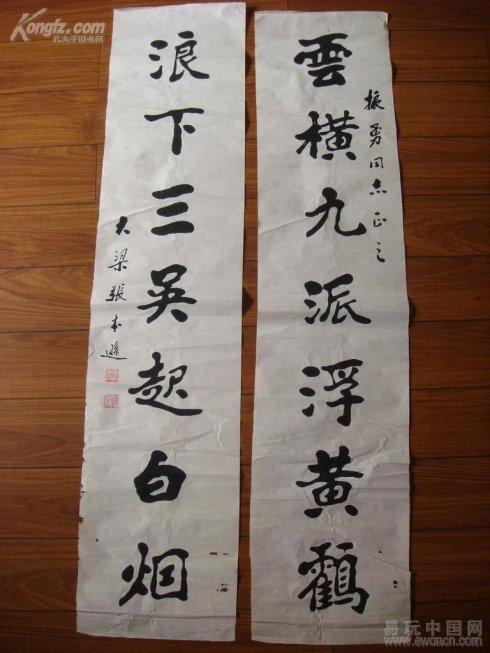 雲橫九派浮黄鶴
振勇同志正之
浪下三吴起白烟
大梁張本遜
Kongfz.com
孔夫子旧书网
易玩中国网
www.ewancn.com